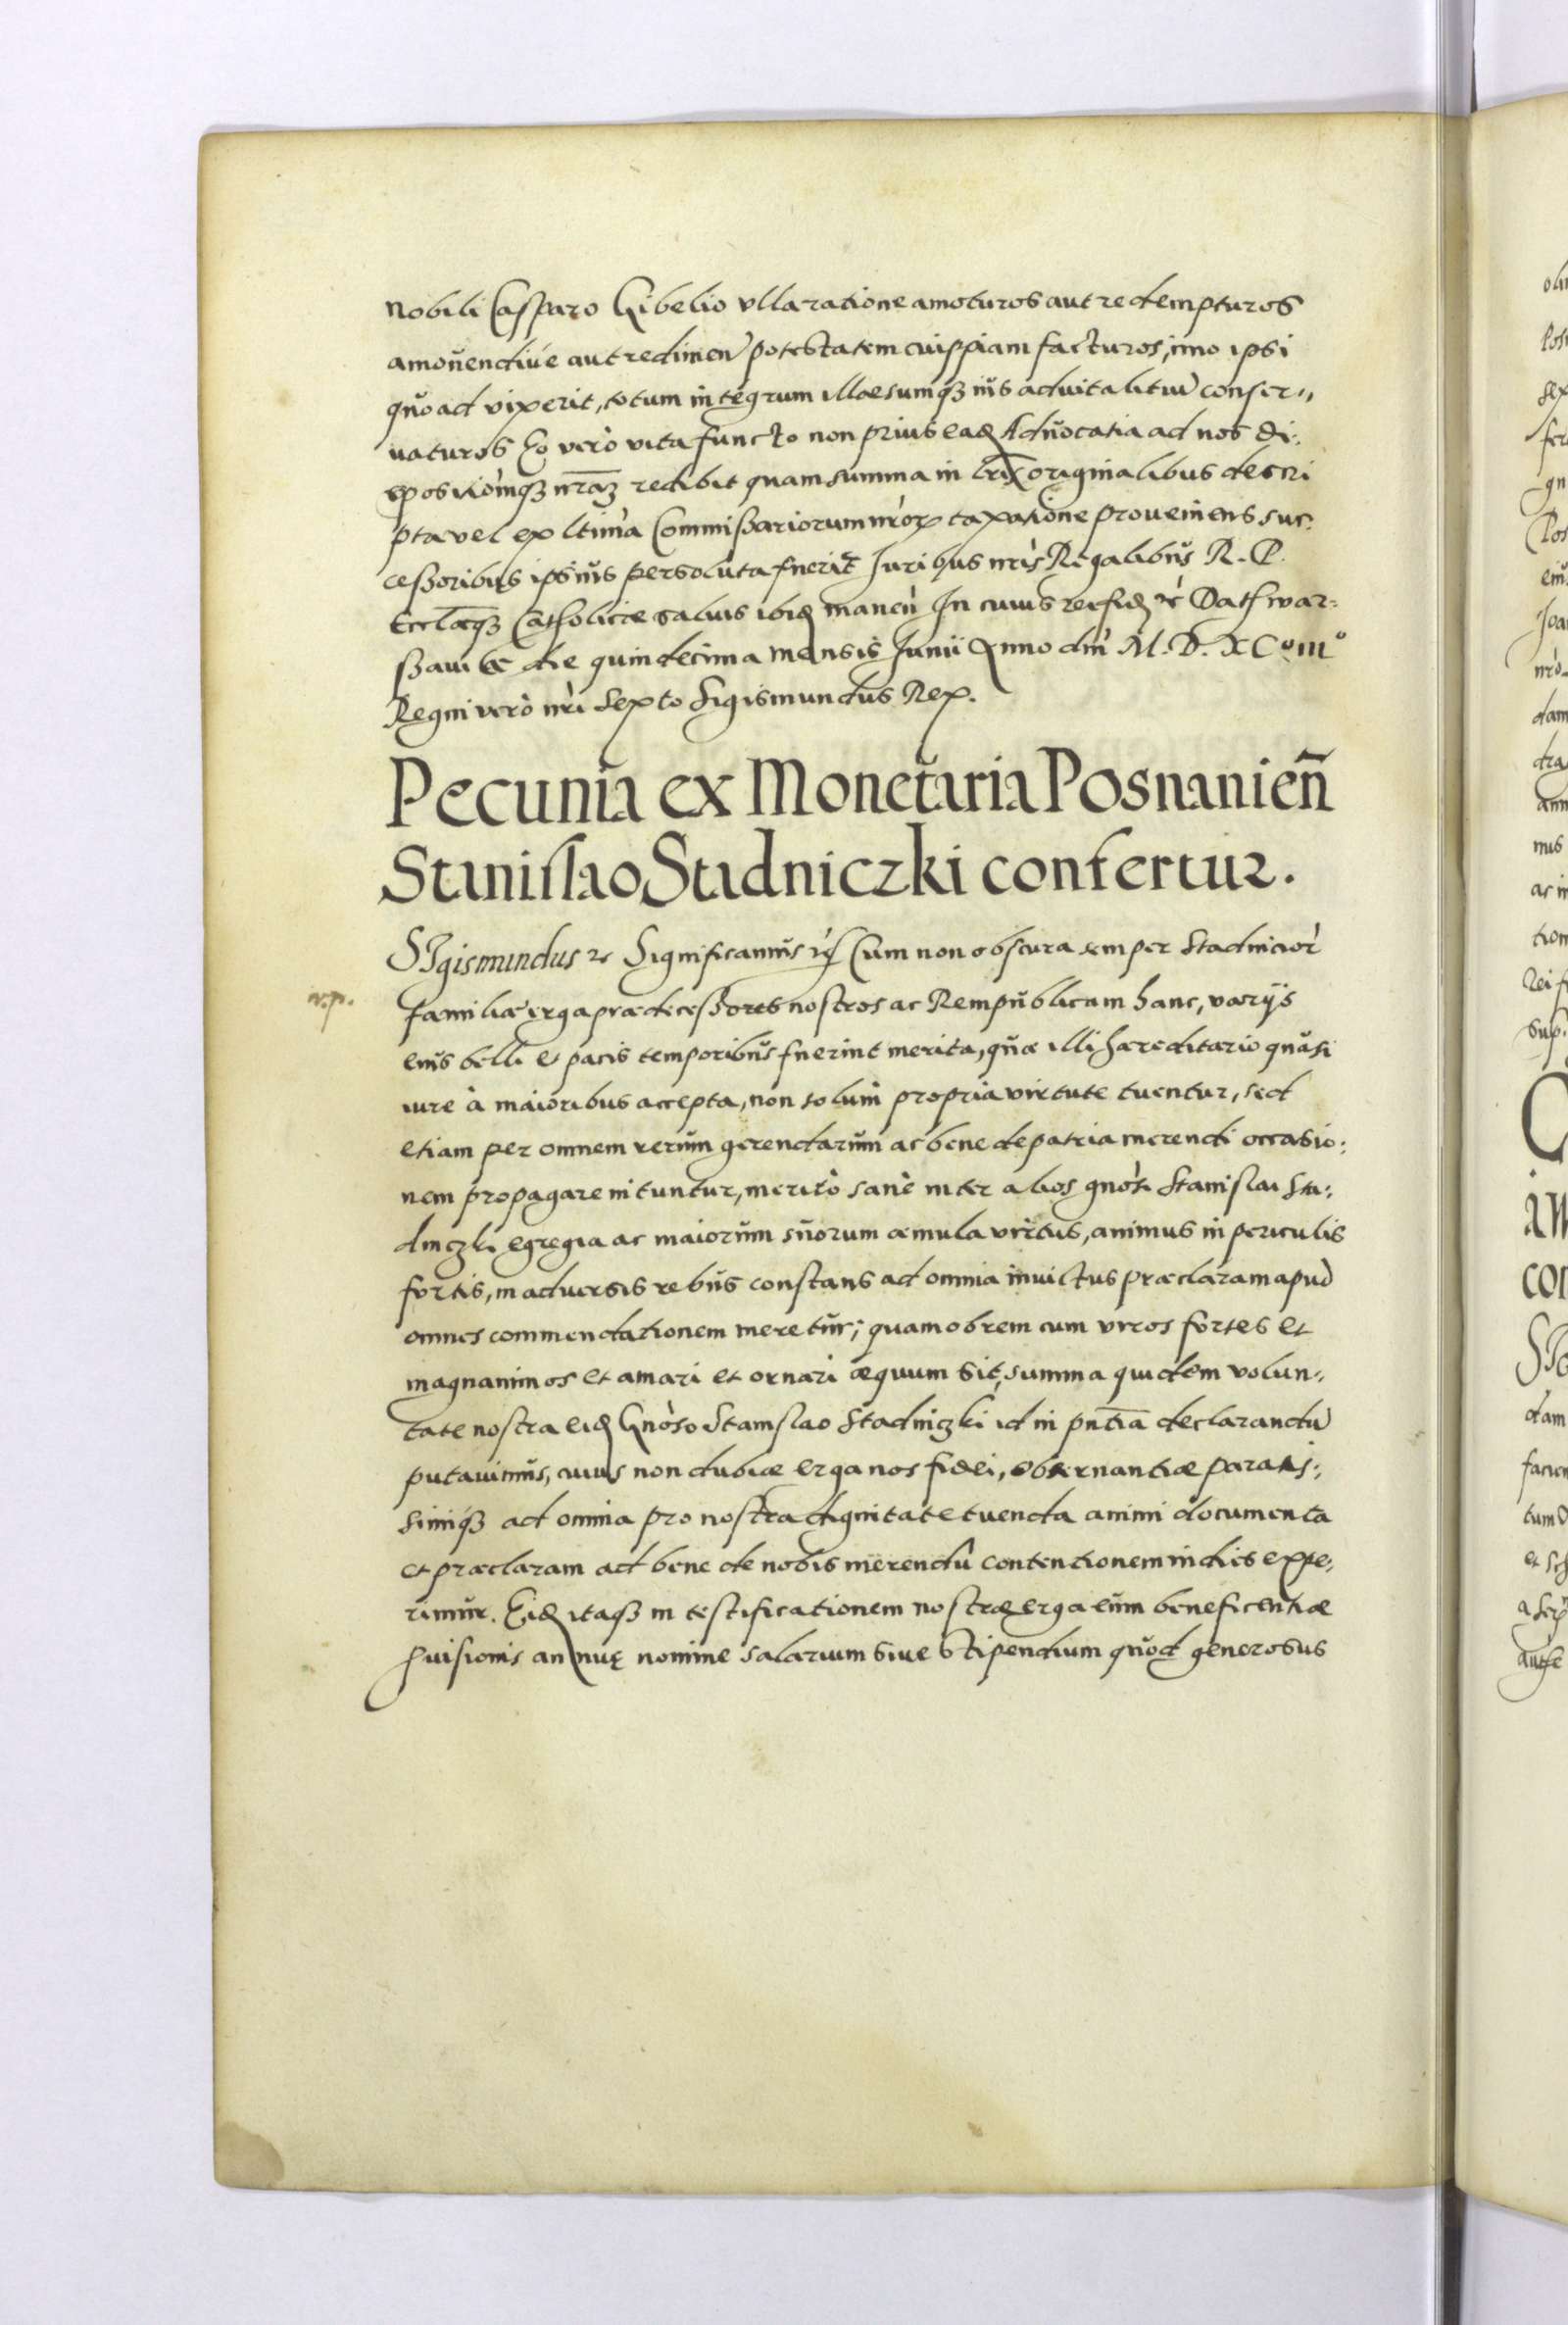 Nobili Casparo Gibelio vlla ratione amoturos aut redempturos
amouendiue aut redimen potestatem cuippiam facturos, imo ipsi
quoad vixerit, totum integrum illaesumq3 ius aduitalitiu conser„
uaturos Eo vero vita functo non prius ead Aduocatia ad nos di:
spositiomq3 nram redibit quam summa in lris originalibus descri
pta vel ex ltima Commissariorum nror taxatione proueniens suc:
cessoribus ipsius persoluta fuerit Juribus nris Regalibus R. P.
Ecclaeq3 Catholicae saluis ibid manen In cuius rei fid &c Dat War=
ssauiae die quindecima mensis Junii Anno dni M. D. XCoIIIo
Regni vero nri Sexto Sigismundus Rex.
Pecunia ex Monetaria Posnanien
Stanislao Stadniczki confertur.
SIgismundus &c Significamus &c Cum non obscura semper Stadnicior
v.p.
familiae erga praedecessores nostros ac Rempublicam hanc, varijs
eius belli et pacis temporibus fuerint merita, quae illi haereditario quasi
iure à maioribus accepta, non solum propria virtute tuentur, sed
etiam per omnem rerum gerendarum ac bene de patria merendi occasio:
nem propagare nituntur, meritò sanè inter alios gnosi Stanislai Sta:
dniczki egregia ac maiorum suorum aemula virtus, animus in periculis
fortis, in aduersis rebus constans ad omnia inuictus praeclaram apud
omnes commendationem meretur; quamobrem cum viros fortes et
magnanimos et amari et ornari aequum sit, summa quidem volun:
tate nostra eid Gnoso Stanislao Stadniczki id in pntia declarandu
putauimus, cuius non dubiae erga nos fidei, obseruantiae paratis:
simiq3 ad omnia pro nostra dignitate tuenda animi documenta
et praeclaram ad bene de nobis merendu contentionem in dies expe:
rimur. Eid itaq3 in testificationem nostrae erga eum beneficentiae
puisionis annuę nomine salarium siue stipendium quod generosus